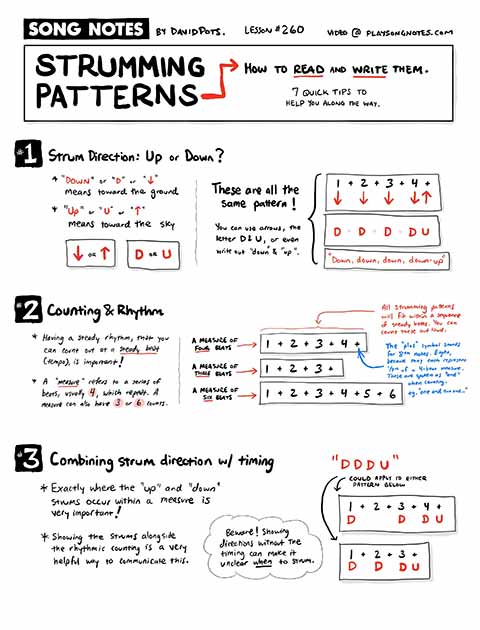 SONG NOTES BY DAVIDPOTS. LESSON #260 VIDEO @ PLAYSONGNOTES.COM
STRUMMING
PATTERNS
HOW TO READ AND WRITE THEM.
7 QUICK TIPS TO
HELP YOU ALONG THE WAY.
#1 STRUM DIRECTION: UP OR DOWN?
* "DOWN" or "D" or "↓"
means toward the ground
* "Up" or "U" or "↑"
means toward the sky
↓ OR ↑
D OR U
These are all the
same pattern!
You can use arrows, the
letter D & U, or even
write out "down" & "up".
1 + 2 + 3 + 4 +
↓ ↓ ↓ ↓ ↑
D D D D U
"Down, down, down, down-up"
#2 Counting & Rhythm
* Having a steady rhythm, that you
can count out at a steady beat
(tempo), is important!
* A "measure" refers to a series of
beats, usually 4, which repeat. A
measure can also have 3 or 6 counts.
A MEASURE OF
FOUR BEATS
1 + 2 + 3 + 4 +
A MEASURE OF
THREE BEATS
1 + 2 + 3 +
A MEASURE OF
SIX BEATS
1 + 2 + 3 + 4 + 5 + 6
All strumming patterns
will fit within a sequence
of steady beats. You can
count these out loud.
The "plus" symbol stands
for 8th notes.
because they each represent
These are spoken as "and"
when counting.
eg. "one and two and..."
#3 Combining strum direction w/ timing
* Exactly where the "up" and "down"
strums occur within a measure is
very important!
* Showing the strums alongside
the rhythmic counting is a very
helpful way to communicate this.
Beware! Showing
directions without the
timing can make it
unclear when to strum.
"D D D U"
COULD APPLY TO EITHER
PATTERN BELOW
1 + 2 + 3 + 4 +
D D D U
1 + 2 + 3 +
D D D U